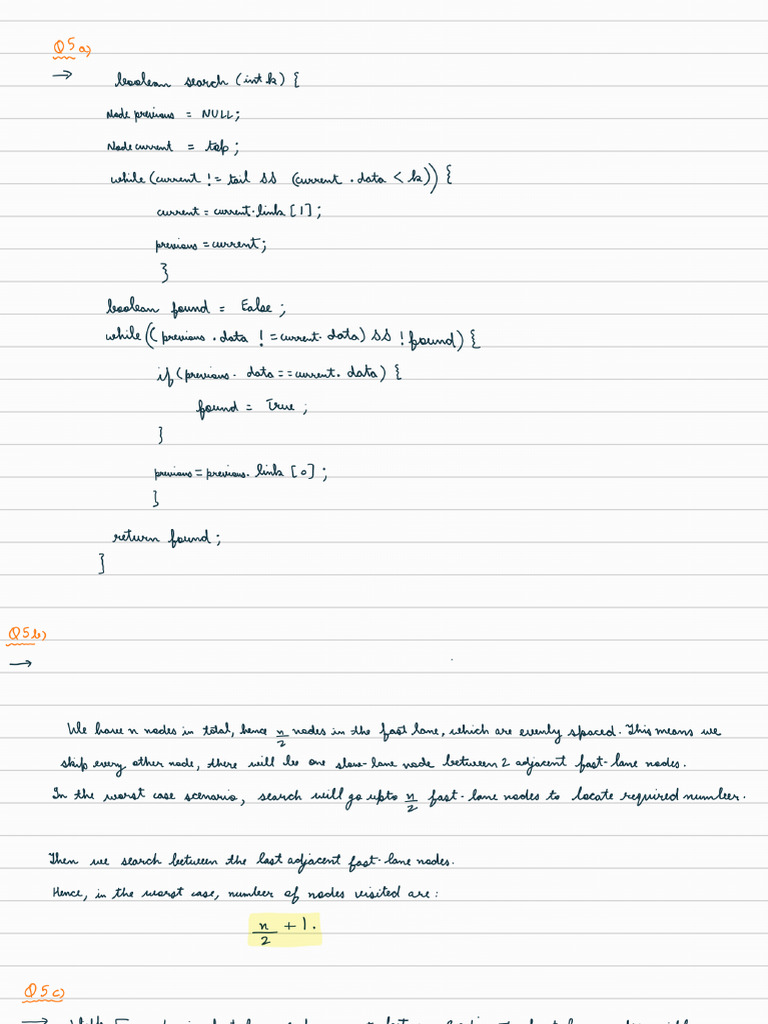 Q5a)
→ boolean search (int k) {
Node previous = NULL;
Node current = top;
while (current != tail && (current . data < k)) {
current = current.link [1];
previous = current;
}
boolean found = False;
while ((previous . data != current. data) && !found) {
if (previous. data == current. data) {
found = True;
}
previous = previous. link [0];
}
return found;
}
Q5b)
→
We have n nodes in total, hence n/2 nodes in the fast lane, which are evenly spaced. This means we
skip every other node, there will be one slow-lane node between 2 adjacent fast-lane nodes.
In the worst case scenario, search will go upto n/2 fast-lane nodes to locate required number.
Then we search between the last adjacent fast-lane nodes.
Hence, in the worst case, number of nodes visited are:
n/2 + 1.
Q5c)
→